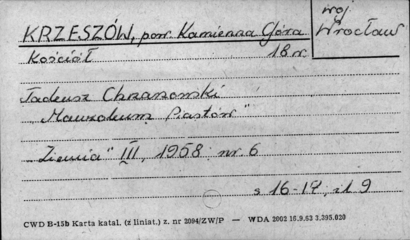 KRZESZÓW, pow. Kamienna Góra
woj. Wrocław
Kościół 18 w.
Tadeusz Chrzanowski
"Mauzoleum Piastów"
"Ziemia" III, 1958 nr 6
s 16-19, il 9
CWD B-15b Karta katal. (z liniat.) z. nr 2094/ZW/P — WDA 2002 16.9.63 3.395.020